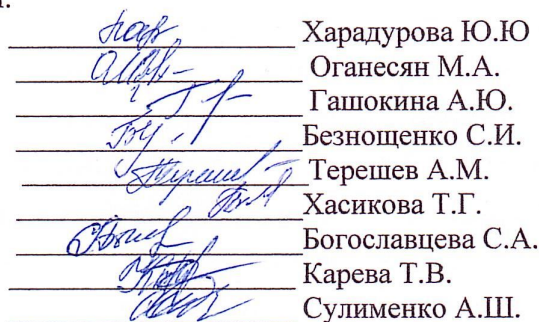 Харадурова Ю.Ю
Оганесян М.А.
Гашокина А.Ю.
Безнощенко С.И.
Терешев А.М.
Хасикова Т.Г.
Богославцева С.А.
Карева Т.В.
Сулименко А.Ш.